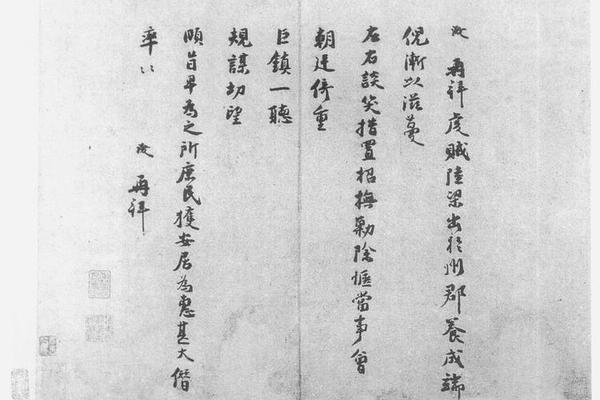 浚再拜虔賊陸梁出於州郡養成端
倪漸以滋蔓
左右談笑措置招撫勦除愜當事會
朝廷倚重
巨鎮一聽
規謀切望
頤旨早為之所庶民獲安居為惠甚大僭
率〻 浚再拜